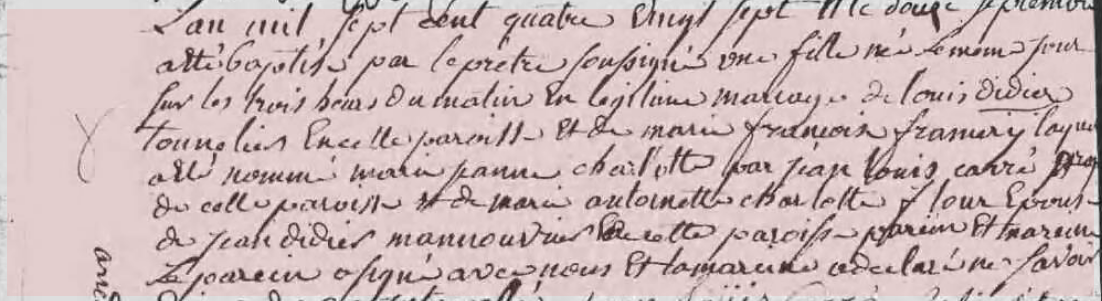 L'an mil sept cent quatre vingt sept le douze septembre
a été baptisé par le prêtre soussigné une fille né le meme jour
sur les trois heurs du matin En legitime mariage de louis didier
tonnelier En cette paroisse Et de marie francoise framery laquel
a été nommé marie janne charlotte par jean louis carré
de cette paroisse et de marie antoinette charlotte flour Epouse
de jean didier mannouvrier de cette paroisse parein Et mareine
Le parein a signé avec nous Et la mareine a declaré ne savoir